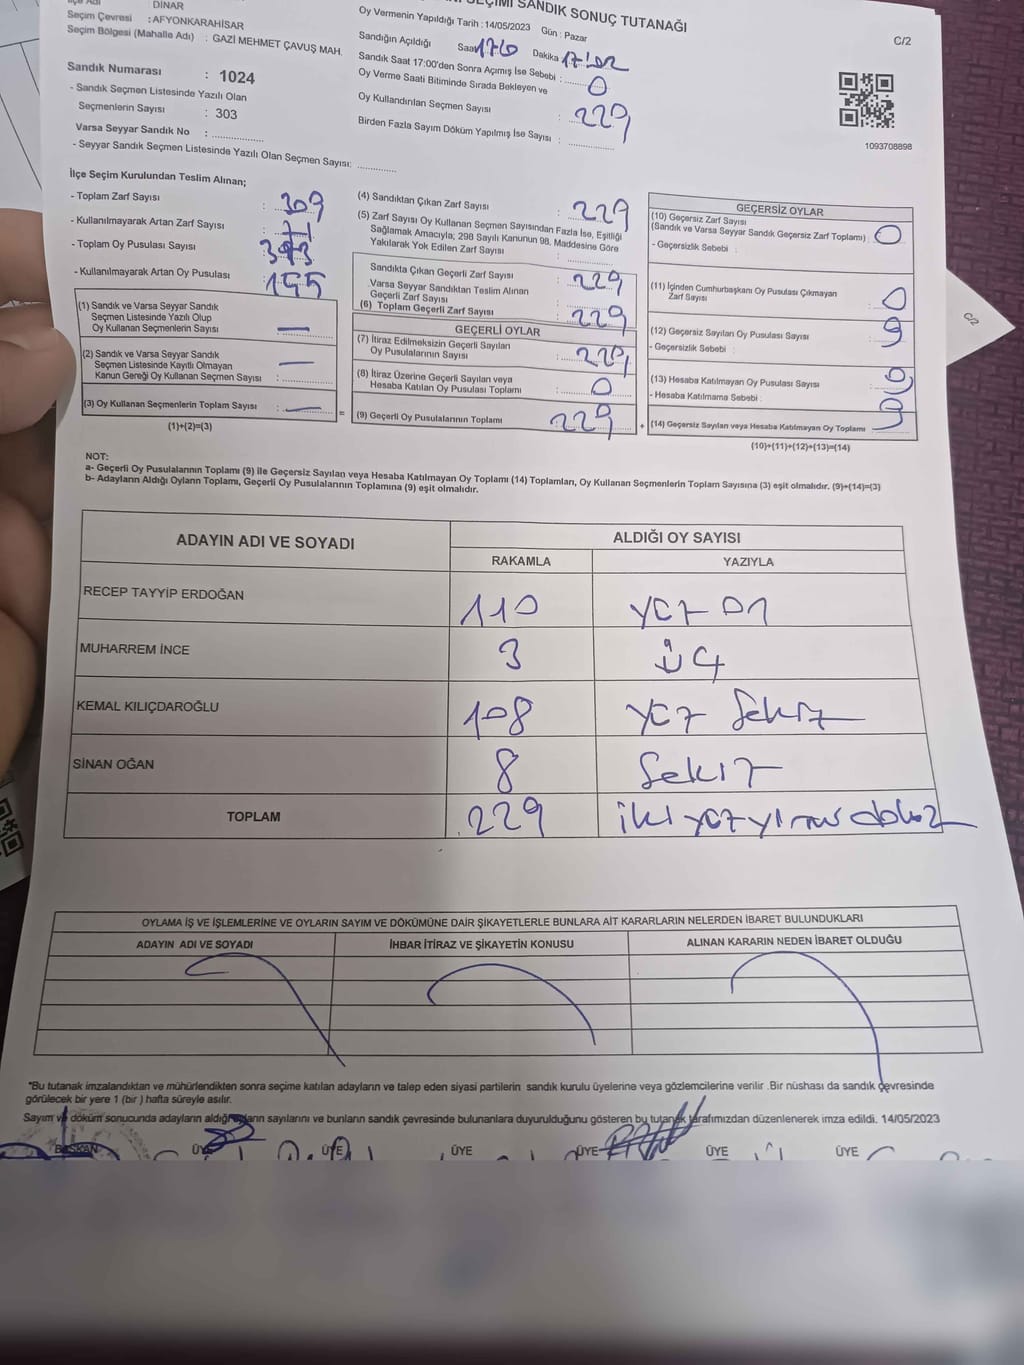 SANDIK SONUÇ TUTANAĞI
C/2
DİNAR
Seçim Çevresi : AFYONKARAHİSAR
Seçim Bölgesi (Mahalle Adı) : GAZİ MEHMET ÇAVUŞ MAH.
Sandık Numarası : 1024
- Sandık Seçmen Listesinde Yazılı Olan
Seçmenlerin Sayısı : 303
Varsa Seyyar Sandık No :
- Seyyar Sandık Seçmen Listesinde Yazılı Olan Seçmen Sayısı:
Oy Vermenin Yapıldığı Tarih : 14/05/2023 Gün : Pazar
Sandığın Açıldığı Saat Dakika
Sandık Saat 17:00'den Sonra Açımış İse Sebebi :
Oy Verme Saati Bitiminde Sırada Bekleyen ve 0
Oy Kullandırılan Seçmen Sayısı : 229
Birden Fazla Sayım Döküm Yapılmış İse Sayısı :
1093708898
İlçe Seçim Kurulundan Teslim Alınan;
- Toplam Zarf Sayısı : 309
- Kullanılmayarak Artan Zarf Sayısı :
- Toplam Oy Pusulası Sayısı :
- Kullanılmayarak Artan Oy Pusulası : 155
(1) Sandık ve Varsa Seyyar Sandık
Seçmen Listesinde Yazılı Olup
Oy Kullanan Seçmenlerin Sayısı : —
(2) Sandık ve Varsa Seyyar Sandık
Seçmen Listesinde Kayıtlı Olmayan
Kanun Gereği Oy Kullanan Seçmen Sayısı : —
(3) Oy Kullanan Seçmenlerin Toplam Sayısı : — =
(1)+(2)=(3)
(4) Sandıktan Çıkan Zarf Sayısı : 229
(5) Zarf Sayısı Oy Kullanan Seçmen Sayısından Fazla İse, Eşitliği
Sağlamak Amacıyla; 298 Sayılı Kanunun 98. Maddesine Göre
Yakılarak Yok Edilen Zarf Sayısı :
Sandıkta Çıkan Geçerli Zarf Sayısı : 229
Varsa Seyyar Sandıktan Teslim Alınan
Geçerli Zarf Sayısı :
(6) Toplam Geçerli Zarf Sayısı : 229
GEÇERLİ OYLAR
(7) İtiraz Edilmeksizin Geçerli Sayılan
Oy Pusulalarının Sayısı : 229
(8) İtiraz Üzerine Geçerli Sayılan veya
Hesaba Katılan Oy Pusulası Toplamı : 0
(9) Geçerli Oy Pusulalarının Toplamı 229 +
GEÇERSİZ OYLAR
(10) Geçersiz Zarf Sayısı
(Sandık ve Varsa Seyyar Sandık Geçersiz Zarf Toplamı) : 0
- Geçersizlik Sebebi :
(11) İçinden Cumhurbaşkanı Oy Pusulası Çıkmayan
Zarf Sayısı : 0
(12) Geçersiz Sayılan Oy Pusulası Sayısı : 9
- Geçersizlik Sebebi :
(13) Hesaba Katılmayan Oy Pusulası Sayısı :
- Hesaba Katılmama Sebebi :
(14) Geçersiz Sayılan veya Hesaba Katılmayan Oy Toplamı
(10)+(11)+(12)+(13)=(14)
NOT:
a- Geçerli Oy Pusulalarının Toplamı (9) ile Geçersiz Sayılan veya Hesaba Katılmayan Oy Toplamı (14) Toplamları, Oy Kullanan Seçmenlerin Toplam Sayısına (3) eşit olmalıdır. (9)+(14)=(3)
b- Adayların Aldığı Oyların Toplamı, Geçerli Oy Pusulalarının Toplamına (9) eşit olmalıdır.
ADAYIN ADI VE SOYADI ALDIĞI OY SAYISI
RAKAMLA YAZIYLA
RECEP TAYYİP ERDOĞAN 110 yüz on
MUHARREM İNCE 3 üç
KEMAL KILIÇDAROĞLU 108 yüz Sekiz
SİNAN OĞAN 8 Sekiz
TOPLAM 229 iki yüz yirmi dokuz
OYLAMA İŞ VE İŞLEMLERİNE VE OYLARIN SAYIM VE DÖKÜMÜNE DAİR ŞİKAYETLERLE BUNLARA AİT KARARLARIN NELERDEN İBARET BULUNDUKLARI
ADAYIN ADI VE SOYADI İHBAR İTİRAZ VE ŞİKAYETİN KONUSU ALINAN KARARIN NEDEN İBARET OLDUĞU
*Bu tutanak imzalandıktan ve mühürlendikten sonra seçime katılan adayların ve talep eden siyasi partilerin sandık kurulu üyelerine veya gözlemcilerine verilir .Bir nüshası da sandık çevresinde
görülecek bir yere 1 (bir ) hafta süreyle asılır.
Sayım ve döküm sonucunda adayların aldığı oyların sayılarını ve bunların sandık çevresinde bulunanlara duyurulduğunu gösteren bu tutanak tarafımızdan düzenlenerek imza edildi. 14/05/2023
BAŞKAN ÜYE ÜYE ÜYE ÜYE ÜYE ÜYE
C/2